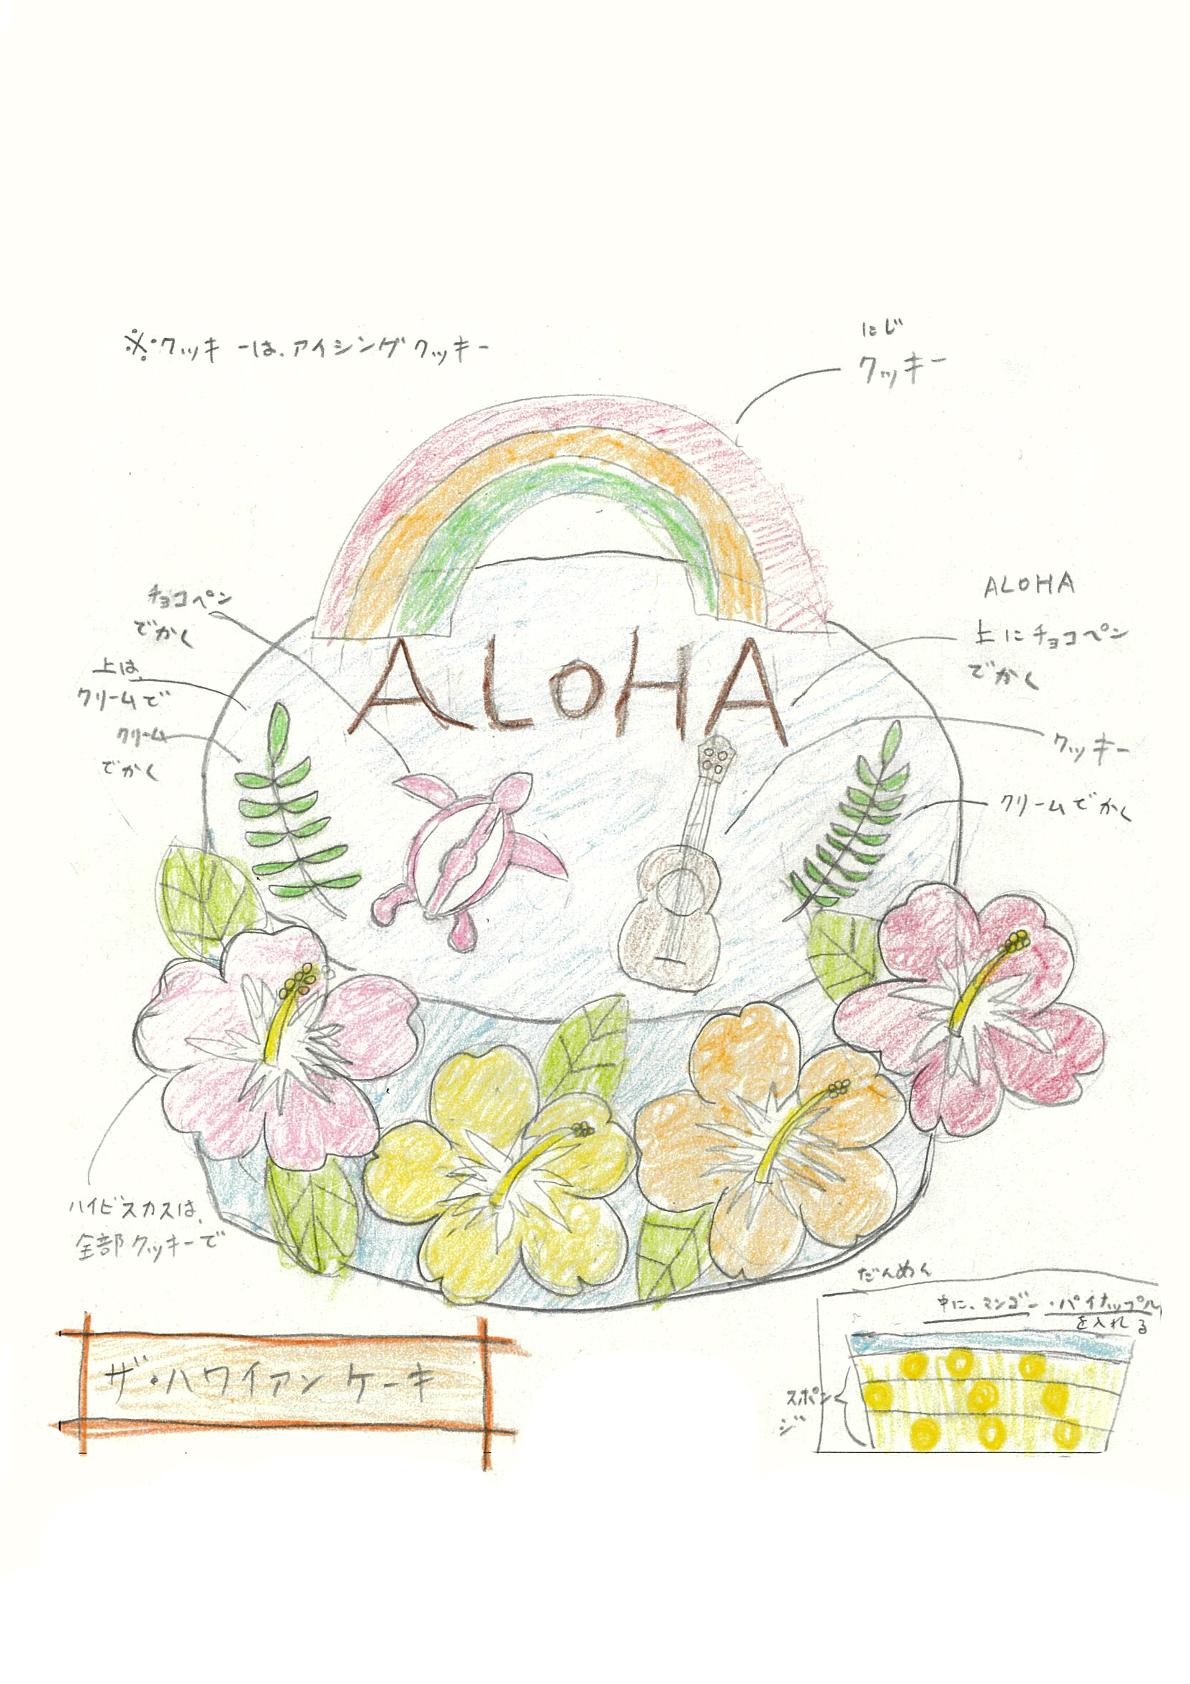 ※クッキーは、アイシングクッキー
にじ
クッキー
チョコペン
でかく
上は、
クリームで
クリーム
でかく
ALOHA
ALOHA
上にチョコペン
でかく
クッキー
クリームでかく
ハイビスカスは、
全部クッキーで
ザ・ハワイアンケーキ
だんめん
中に、マンゴー・パイナップル
を入れる
スポン
ジ